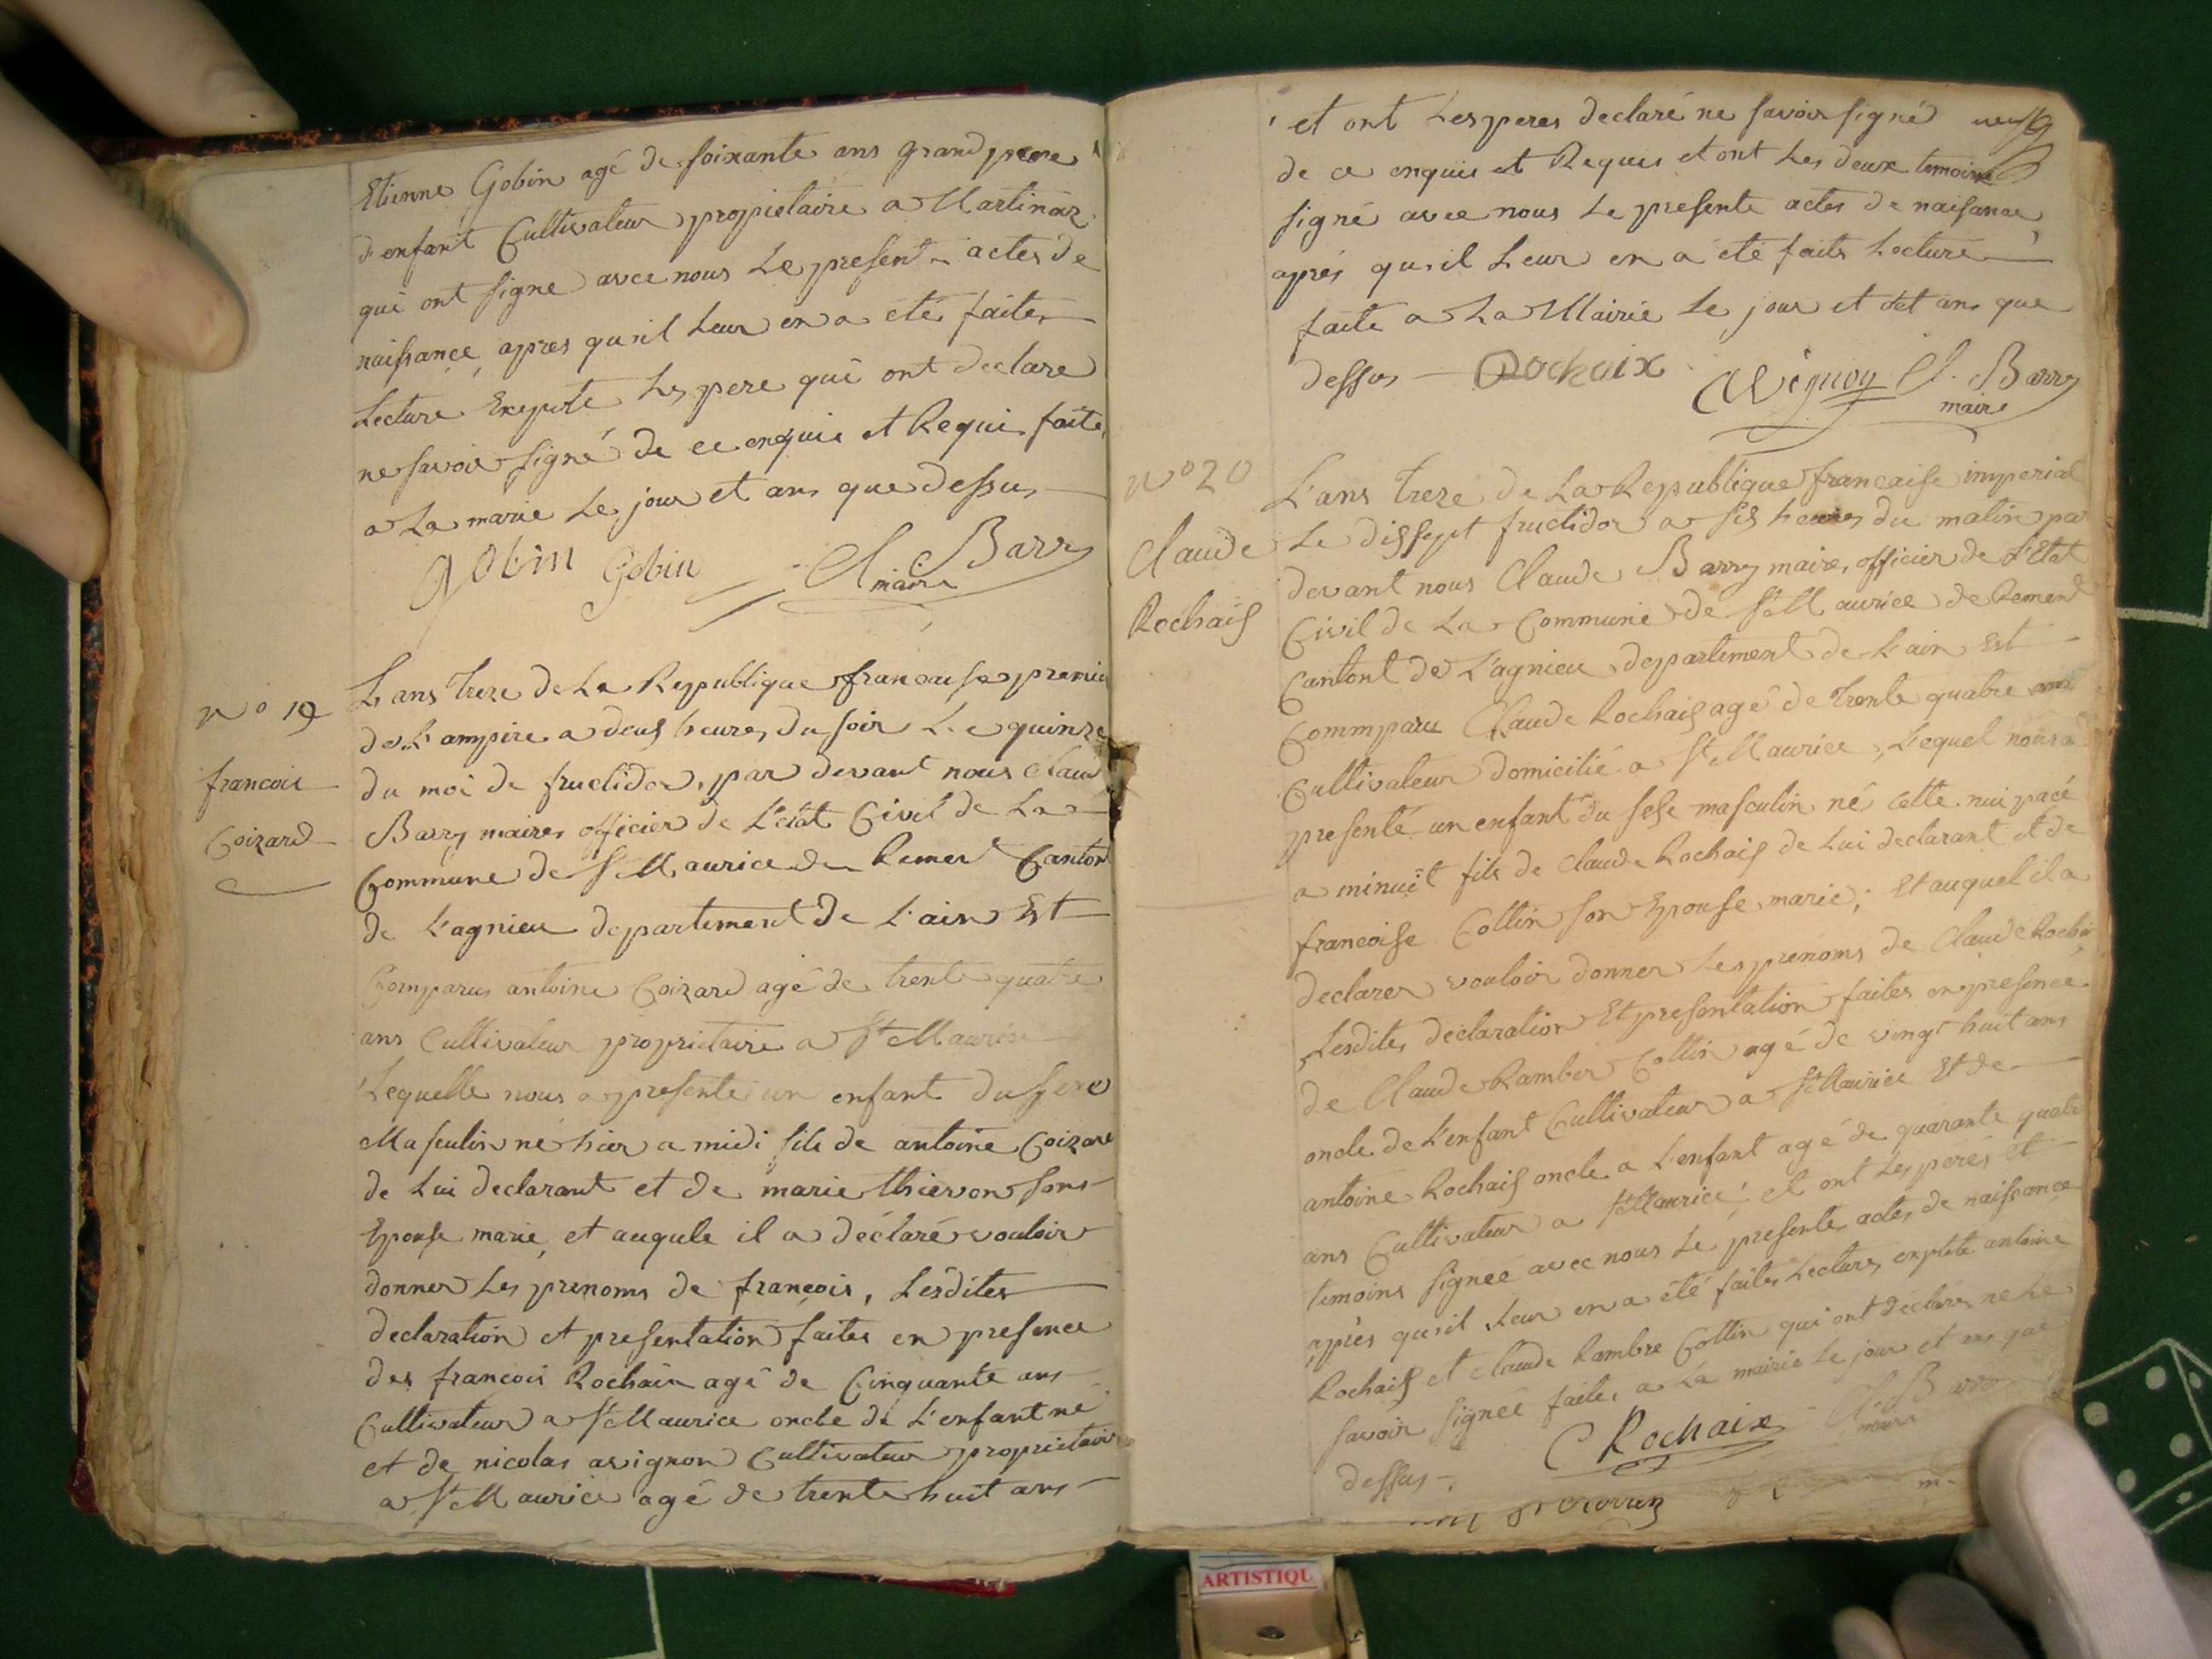 Etienne Gobin agé de soixante ans grand pere
d'enfant Cultivateur propietaire a Martinaz
qui ont signe avec nous Le present actes de
naissance, apres quil Leur en a été faites
Lecture Exepte Les pere qui ont declare
ne savoir signé de ce enquis et Requi faite
a La marie Le jour et ans que dessus
gobin Gobin Cl. Barry
maire
N° 19
francois
Coizard
L'ans treze de La Republique francaise premier
de L'ampire a deus heures du soir Le quinze
du moi de fructidor, par devant nous Claud
Barry maire officier de L'etat Civil de La
Commune de St Maurice de Remend Canton
de L'agnieu departement de L'ain Est
Comparus antoine Coizard agé de trente quatre
ans Cultivateur proprietaire a St Maurice
Lequelle nous a presenté un enfant du sexe
Masculin né hier a midi fils de antoine Coizard
de Lui declarant et de marie thievon sons
Epouse marie, et auqule il a déclaré vouloir
donner Les prenoms de francois, Lesdites
declaration et presentation faites en presence
des francois Rochaix agé de Cinquante ans
Cultivateur a St Maurice oncle de L'enfant né
et de nicolas avignon Cultivateur proprietaire
a St Maurice agé de trente huit ans
et ont Les peres declaré ne savoir signé neuf 9
de ce enquis et Requis et ont Les deux temoins
signé avec nous Le presente actes de naisance,
aprés quil Leur en a été faits Lecture
faite a La Mairie Le jour et det ans que
dessus Rochaix Avignon Cl. Barry
maire
N° 20
Claude
Rochais
L'ans treze de La Republique francaise imperial
Le dissept fructidor a sis heures du matin par
devant nous Claude Barry maire, officier de L'Etat
Civil de La Commune de St Maurice de Remend
Cantont de L'agnieu departement de L'ain Est
Commparu Claude Rochais agé de trente quatre ans
Cultivateur domicilié a St Maurice, Lequel nous a
presenté un enfant du sese masculin né cette nui pacé
a minuit fils de Claude Rochais de Lui declarant et de
francoise Cottin son Epouse marie; Et auquel il a
declarer vouloir donner Les prenoms de Claude Rochais
Lesdites declaration Et presentation faites en presence
de Claude Ramber Cottin agé de vingt huit ans
oncle de L'enfant Cultivateur a St Maurice Et de
antoine Rochais oncle a L'enfant agé de quarante quatre
ans Cultivateur a St Maurice; et ont Les perés et
temoins signeé avec nous Lé presente actes de naissance
aprés quil Leur en a été faites Lectures exptete antoine
Rochais et Claude Rambre Cottin qui ont déclarer ne Le
savoir signeé faites a La mairie Le jour et ans que
dessus C Rochaix Cl. Barry
maire
ARTISTIQU